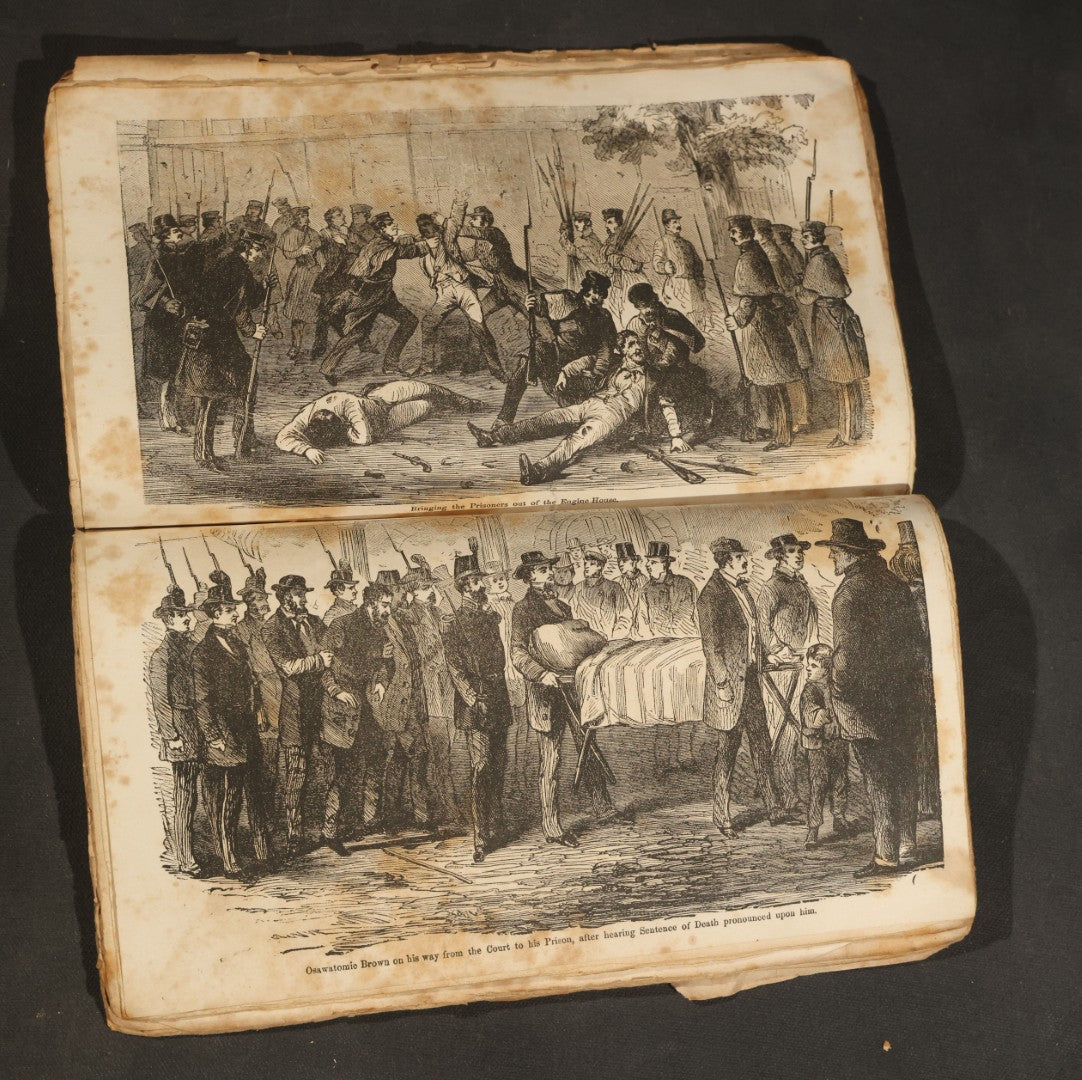 Bringing the Prisoners out of the Engine House.
Osawatomie Brown on his way from the Court to his Prison, after hearing Sentence of Death pronounced upon him.